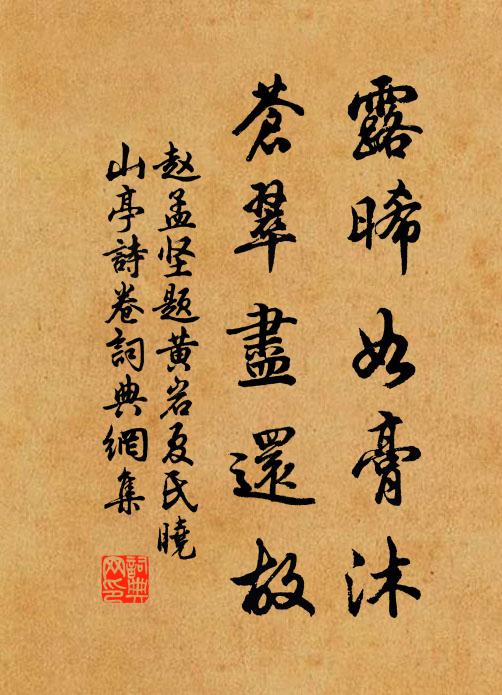 露晞如膏沐
蒼翠盡還故
赵孟坚题黄岩夏氏曉
山亭詩卷詞典網集
詞典网印